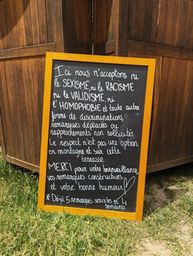 Ici nous n'acceptons ni
le SEXISME, ni le RACISME
ni le VALIDISME, ni
l'HOMOPHOBIE et toute autre
forme de discriminations,
remarques déplacées ou
rapprochements non sollicités.
Le respect n'est pas une option
en montagne et sur cette
terrasse.
MERCI pour votre bienveillance,
vos remarques constructives
et votre bonne humeur!
* Déjà 5 remarques sexistes en 4
semaines